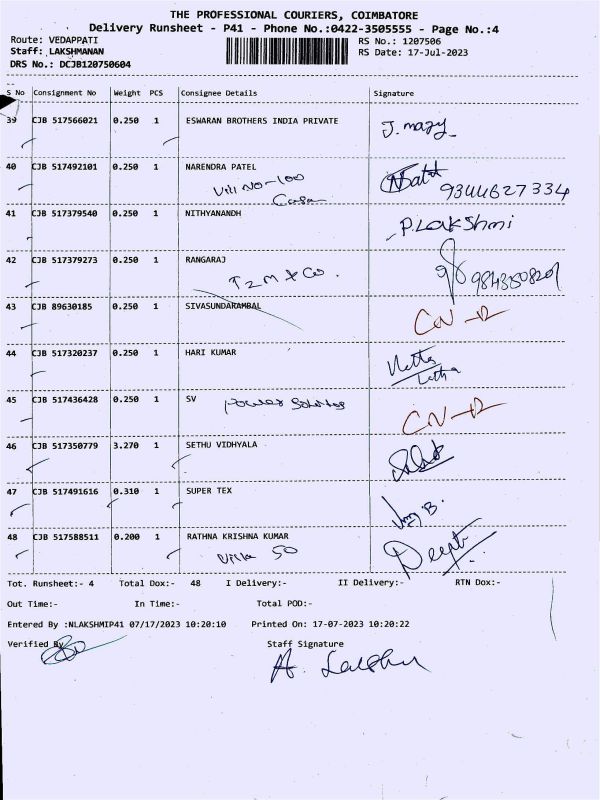 THE PROFESSIONAL COURIERS, COIMBATORE
Delivery Runsheet - P41 - Phone No.:0422-3505555 - Page No.:4
Route: VEDAPPATI RS No.: 1207506
Staff: LAKSHMANAN RS Date: 17-Jul-2023
DRS No.: DCJB120750604
S No Consignment No Weight PCS Consignee Details Signature
39 CJB 517566021 0.250 1 ESWARAN BROTHERS INDIA PRIVATE
40 CJB 517492101 0.250 1 NARENDRA PATEL
Vill NO-100
9344627334
41 CJB 517379540 0.250 1 NITHYANANDH P.LakShmi
42 CJB 517379273 0.250 1 RANGARAJ
T2M & Co.
43 CJB 89630185 0.250 1 SIVASUNDARAMBAL
44 CJB 517320237 0.250 1 HARI KUMAR
45 CJB 517436428 0.250 1 SV
46 CJB 517350779 3.270 1 SETHU VIDHYALA
47 CJB 517491616 0.310 1 SUPER TEX
48 CJB 517588511 0.200 1 RATHNA KRISHNA KUMAR
Villa 50 Deepti
Tot. Runsheet:- 4 Total Dox:- 48 I Delivery:- II Delivery:- RTN Dox:-
Out Time:- In Time:- Total POD:-
Entered By :NLAKSHMIP41 07/17/2023 10:20:10 Printed On: 17-07-2023 10:20:22
Verified By Staff Signature